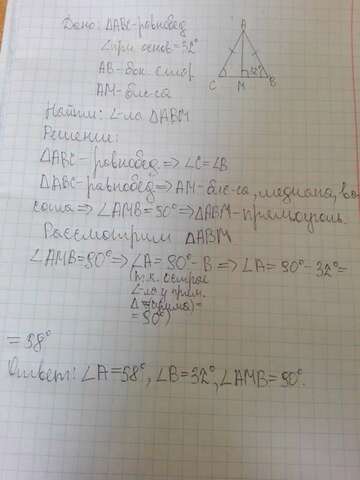 Дано: △ABC-равнобед
∠при основ=32°
AB-бок. стор
AM-бис-са
A
C
M
32°
B
Найти: ∠-ла △ABM
Решение:
△ABC-равнобед⇒∠C=∠B
△ABC-равнобед⇒AM-бис-са, медиана, вы
сота⇒∠AMB=90°⇒△ABM-прямоуголь.
Рассмотрим △ABM
∠AMB=90°⇒∠A=90°-B⇒∠A=90°-32°=
(т.к. острые
∠-ла у прям.
△=(сумма)=
=90°)
=58°
Ответ: ∠A=58°, ∠B=32°, ∠AMB=90°.